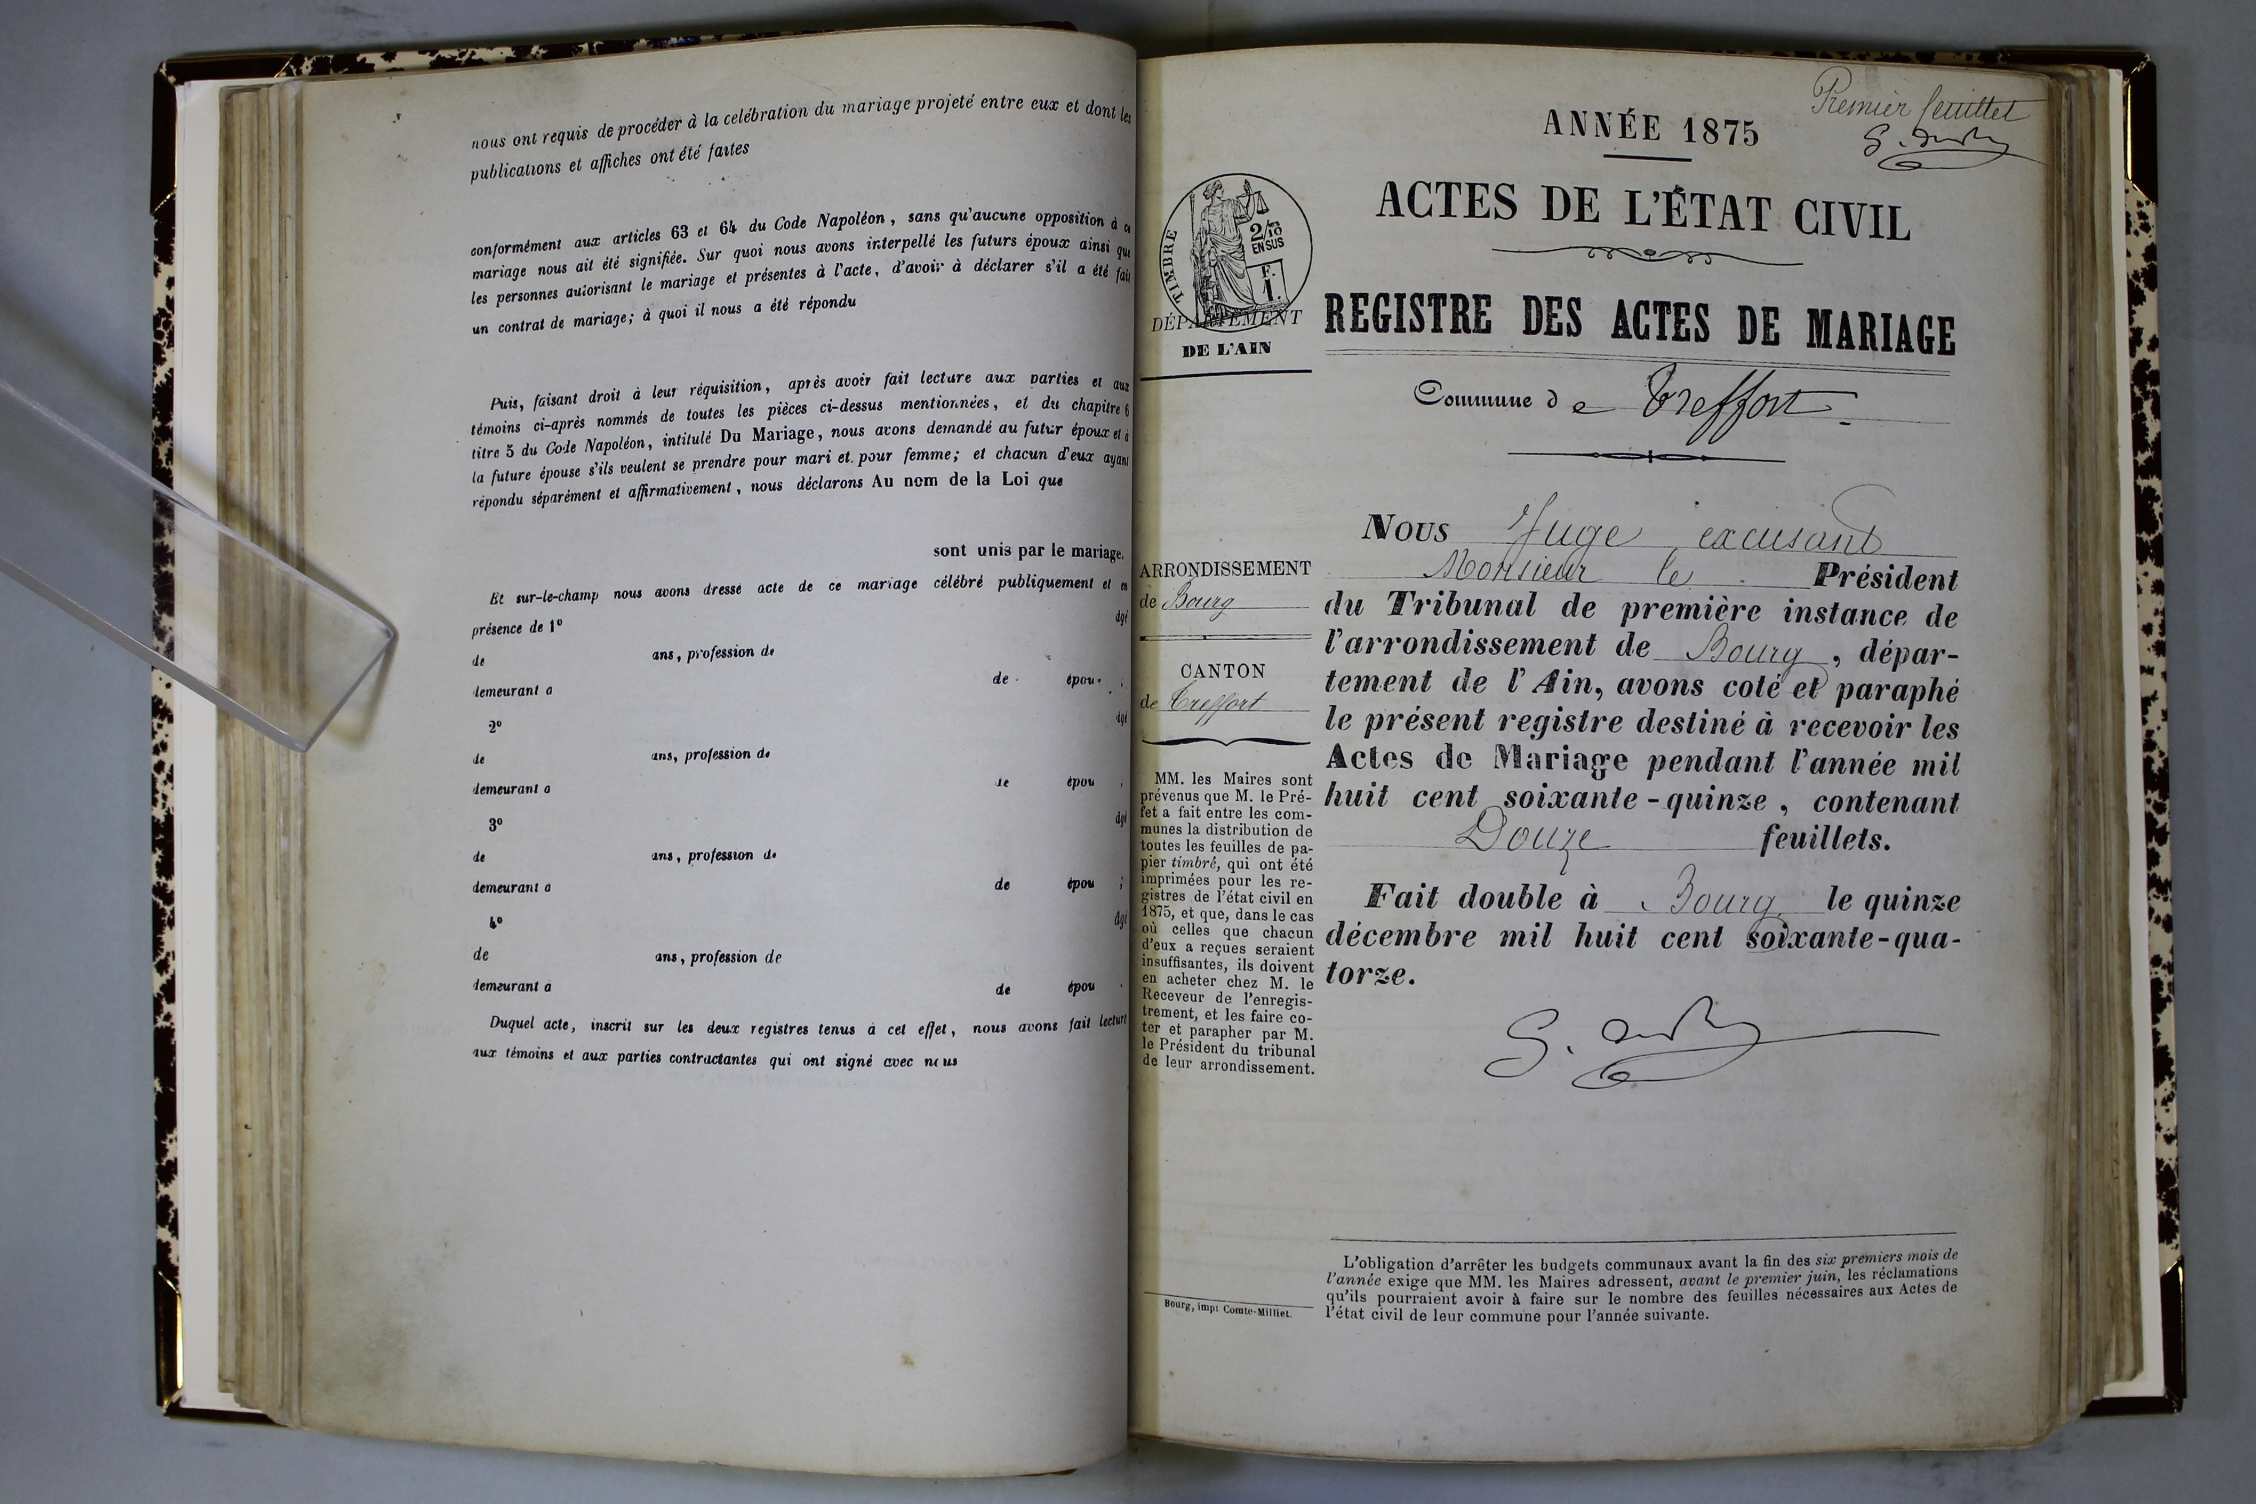 nous ont requis de procéder à la celébration du mariage projeté entre eux et dont les
publications et affiches ont été faites
conformément aux articles 63 et 64 du Code Napoléon, sans qu'aucune opposition à ce
mariage nous ait été signifiée. Sur quoi nous avons interpellé les futurs époux ainsi que
les personnes autorisant le mariage et présentes à l'acte, d'avoir à déclarer s'il a été fait
un contrat de mariage; à quoi il nous a été répondu
Puis, faisant droit à leur réquisition, après avoir fait lecture aux parties et aux
témoins ci-après nommés de toutes les pièces ci-dessus mentionnées, et du chapitre 6
titre 5 du Code Napoléon, intitulé Du Mariage, nous avons demandé au futur époux et à
la future épouse s'ils veulent se prendre pour mari et pour femme; et chacun d'eux ayant
répondu séparément et affirmativement, nous déclarons Au nom de la Loi que
sont unis par le mariage.
Et sur-le-champ nous avons dressé acte de ce mariage célébré publiquement et en
présence de 1º âgé
de ans, profession de
demeurant à de épou ;
2º âgé
de ans, profession de
demeurant à de épou ;
3º âgé
de ans, profession de
demeurant à de épou ;
4º âgé
de ans, profession de
demeurant à de épou .
Duquel acte, inscrit sur les deux registres tenus à cet effet, nous avons fait lecture
aux témoins et aux parties contractantes qui ont signé avec nous
Premier feuillet
ANNÉE 1875
ACTES DE L'ÉTAT CIVIL
TIMBRE
2/10
EN SUS
F.
1.
DÉPARTEMENT
DE L'AIN
REGISTRE DES ACTES DE MARIAGE
Commune de Treffort
ARRONDISSEMENT
de Bourg
CANTON
de Treffort
MM. les Maires sont
prévenus que M. le Pré-
fet a fait entre les com-
munes la distribution de
toutes les feuilles de pa-
pier timbré, qui ont été
imprimées pour les re-
gistres de l'état civil en
1875, et que, dans le cas
où celles que chacun
d'eux a reçues seraient
insuffisantes, ils doivent
en acheter chez M. le
Receveur de l'enregis-
trement, et les faire co-
ter et parapher par M.
le Président du tribunal
de leur arrondissement.
Bourg, impr Comte-Milliet.
Nous Juge excusant
Monsieur le Président
du Tribunal de première instance de
l'arrondissement de Bourg, dépar-
tement de l'Ain, avons coté et paraphé
le présent registre destiné à recevoir les
Actes de Mariage pendant l'année mil
huit cent soixante-quinze, contenant
Douze feuillets.
Fait double à Bourg le quinze
décembre mil huit cent soixante-qua-
torze.
L'obligation d'arrêter les budgets communaux avant la fin des six premiers mois de
l'année exige que MM. les Maires adressent, avant le premier juin, les réclamations
qu'ils pourraient avoir à faire sur le nombre des feuilles nécessaires aux Actes de
l'état civil de leur commune pour l'année suivante.